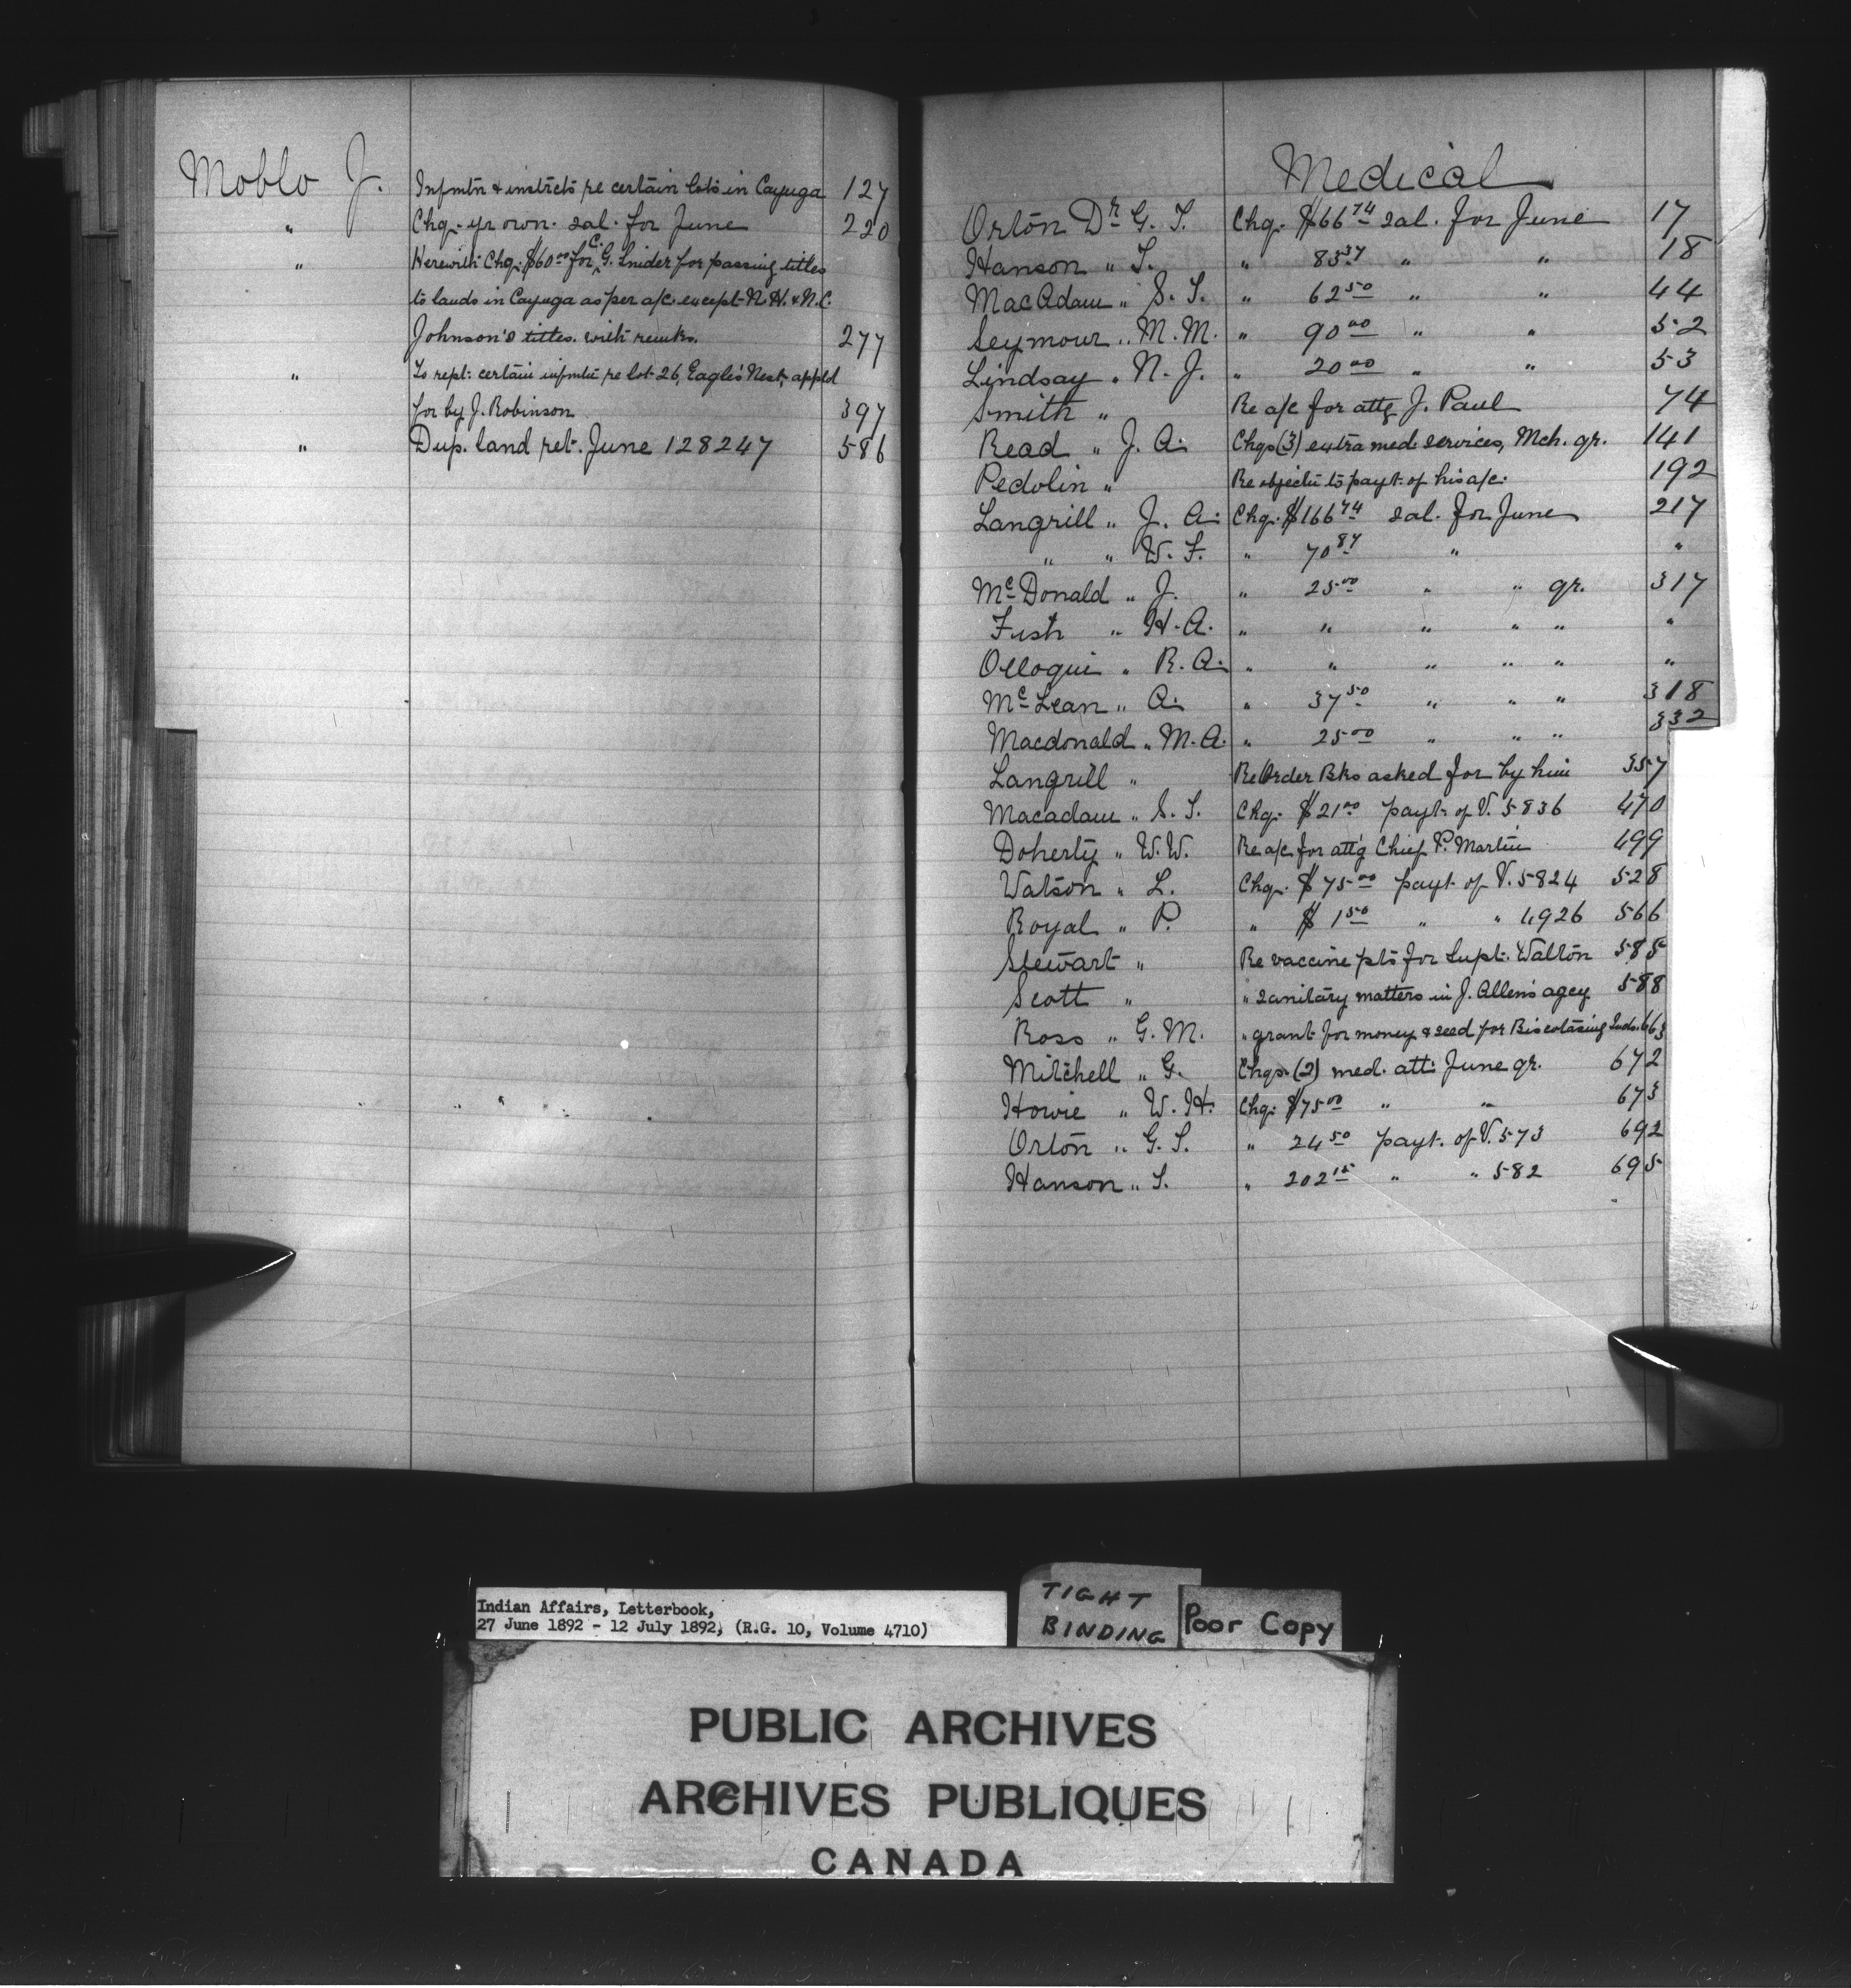 Moblo J. Infmtn & instrcts re certain lots in Cayuga 127
" Chq. yr own. sal. for June 220
" Herewith Chq. $60.00 for C. G. Snider for passing titles
to lands in Cayuga as per a/c. except N. H. & N. C.
Johnson's titles. with remks. 277
" To rept. certain infmtn re lot 26, Eagle's Nest, appld
for by J. Robinson 397
" Dup. land ret. June 128247 586
Medical
Orton Dr G. T. Chq. $66 74 sal. for June 17
Hanson " T. " 85 37 " " 18
MacAdam " S. T. " 62 50 " " 44
Seymour " M. M. " 90 00 " " 52
Lindsay " N. J. " 20 00 " " 53
Smith " Re a/c for attg J. Paul 74
Read " J. A. Chqs (3) extra med. services, Mch. qr. 141
Pedolin " Re objectn to payt. of his a/c. 192
Langrill " J. A. Chq. $166 74 sal. for June 217
" " W. F. " 70 87 " "
McDonald " J. " 25 00 " " qr. 317
Fish " H. A. " " " " " "
Olloqui " R. A. " " " " " "
McLean " A. " 37 50 " " " 318
Macdonald " M. A. " 25 00 " " " 332
Langrill " Re Order Bks asked for by him 357
Macadam " S. T. Chq. $21 00 payt. of V. 5836 470
Doherty " W. W. Re a/c for att'g Chief P. Martin 499
Watson " L. Chq. $75 00 payt. of V. 5824 528
Royal " P. " $1 50 " " 4926 566
Stewart " Re vaccine pts for Supt. Walton 585
Scott " " sanitary matters in J. Allen's agey 588
Ross " G. M. " grant for money & seed for Biscotasing Inds. 663
Mitchell " G. Chqs. (2) med. att. June qr. 672
Howie " W. H. Chq. $75 00 " " 673
Orton " G. T. " 24 50 payt. of V. 573 692
Hanson " T. " 202 15 " " 582 695
Indian Affairs, Letterbook,
27 June 1892 - 12 July 1892, (R.G. 10, Volume 4710)
TIGHT
BINDING
Poor Copy
PUBLIC ARCHIVES
ARCHIVES PUBLIQUES
CANADA